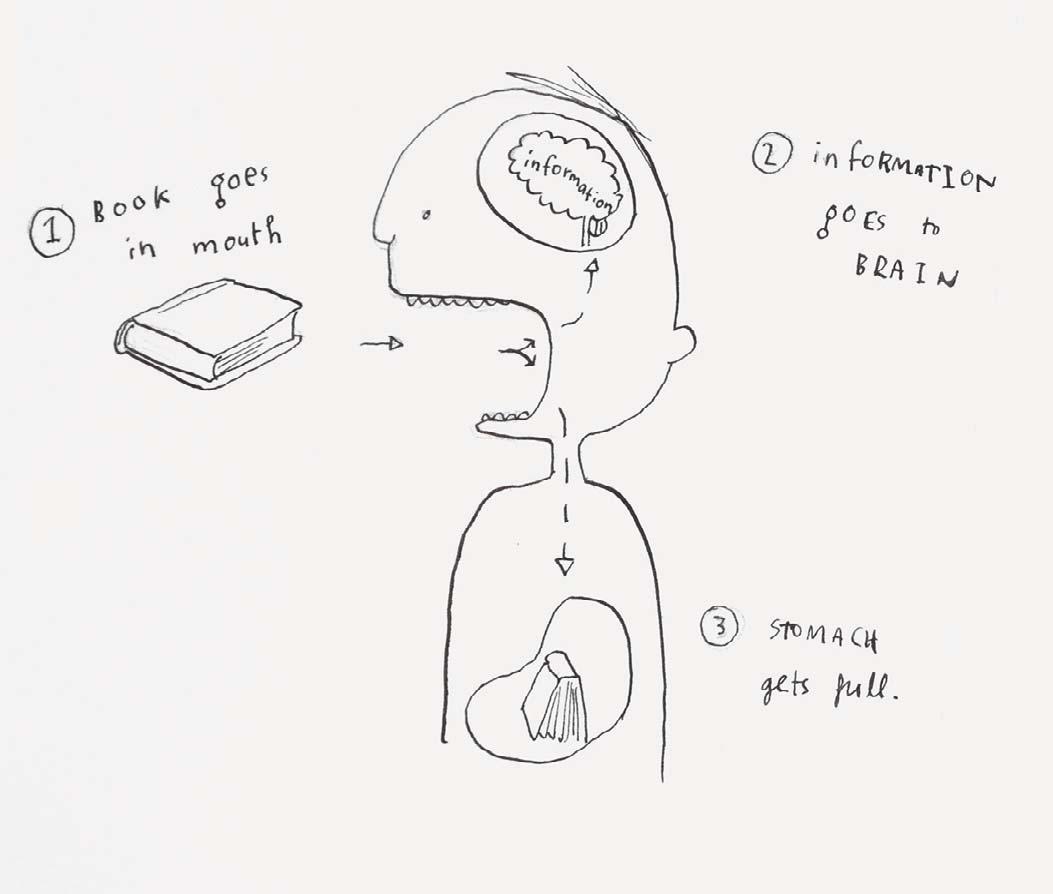 1 BOOK goes
in mouth
information
2 inFORMATION
gOES to
BRAIN
3 STOMACH
gets full.